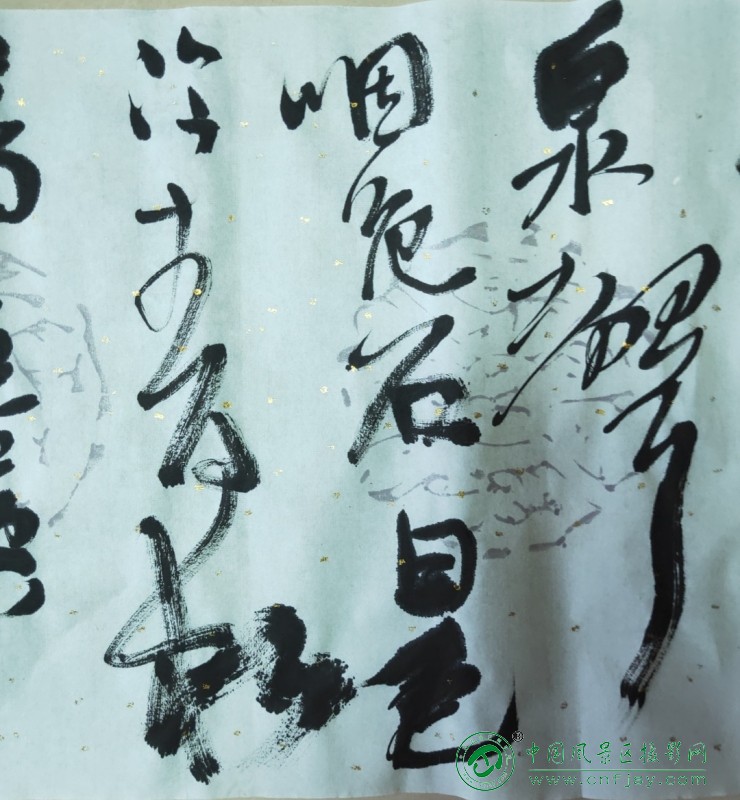 泉聲
咽危石日色
冷青松
中国风景区摄影网
www.cnfjay.com